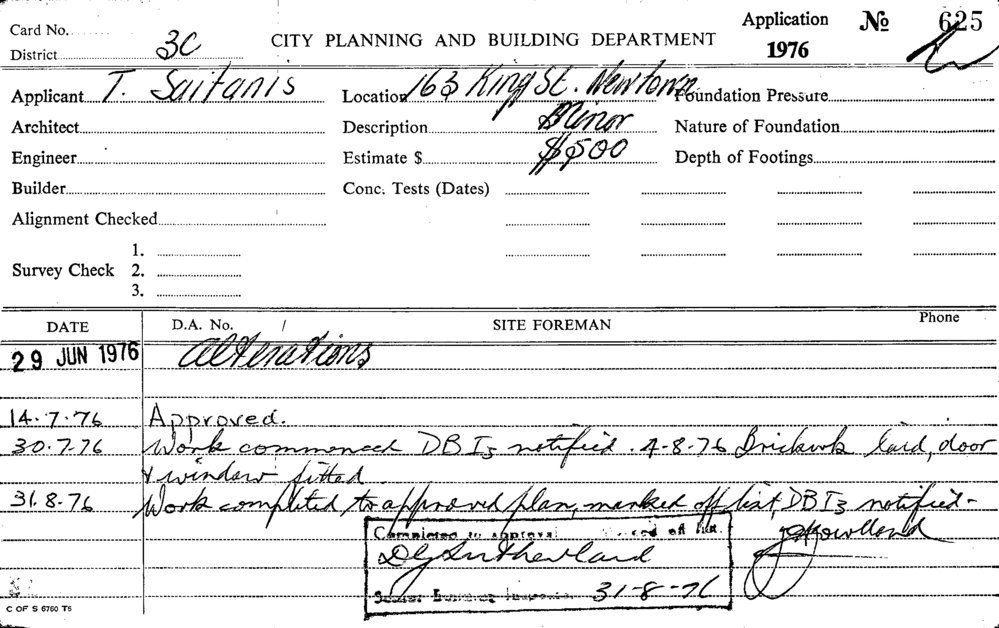 Card No.
District 3C
CITY PLANNING AND BUILDING DEPARTMENT
Application 1976
No 625
Applicant T. Saitanis
Location 163 King St. Newtown
Foundation Pressure
Architect
Description Minor
Nature of Foundation
Engineer
Estimate $ $500
Depth of Footings
Builder
Conc. Tests (Dates)
Alignment Checked
Survey Check
1.
2.
3.
DATE D.A. No. / SITE FOREMAN Phone
29 JUN 1976 Alterations
14.7.76 Approved.
30.7.76 Work commenced DBI3 notified. 4-8-76 Brickwk laid, door
& window fitted.
31.8.76 Work completed to approved plan, marked off list, DBI3 notified-
Completed to approval off list.
DG Sutherland
Senior Building Inspector 31-8-76
C OF S 6760 T5